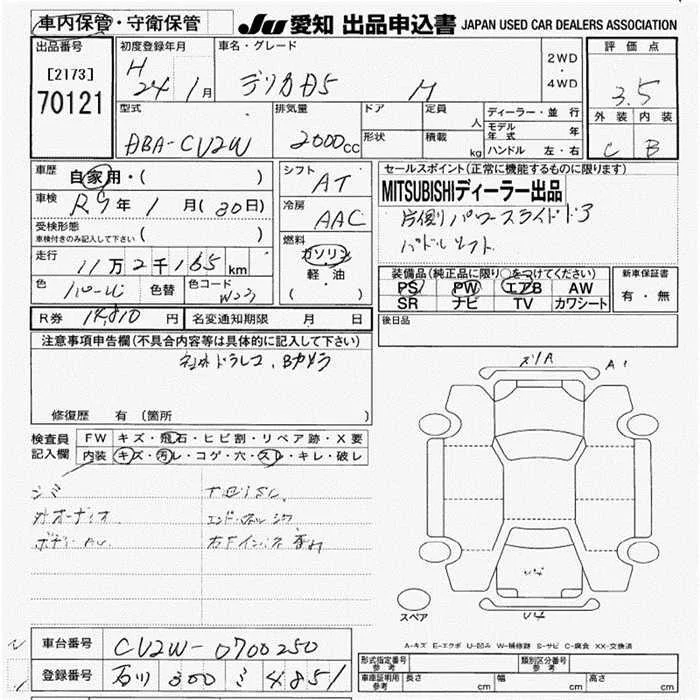 車内保管・守衛保管
JU 愛知 出品申込書 JAPAN USED CAR DEALERS ASSOCIATION
出品番号
[2173]
70121
初度登録年月
H
24 1月
車名・グレード
デリカD5 M
2WD
・
4WD
評価点
3.5
外装 内装
C B
型式
DBA-CV2W
排気量
2000cc
ドア
形状
定員
人
積載
kg
ディーラー・並行
モデル年式 年
ハンドル 左・右
車歴 自家用・( )
車検 R9年1月(30日)
受検形態
車検付きのみ記入して下さい ( )
走行 11万2千165km
色 パール 色替 色コード W23
シフト
AT
冷房
AAC
燃料
ガソリン
軽・油
( ・ )
セールスポイント(正常に機能するものに限ります)
MITSUBISHIディーラー出品
片側パワースライドドア
パドルシフト
装備品(純正品に限り○をつけてください)
PS PW エアB AW
SR ナビ TV カワシート
新車保証書
有・無
R券 14,810円 名変通知期限 月 日
後日品
注意事項申告欄(不具合内容等は具体的に記入して下さい)
社外ドラレコ、Bカメラ
修復歴 有(箇所 )
検査員
記入欄
FW キズ・飛石・ヒビ割・リペア跡・X要
内装 キズ・汚レ・コゲ・穴・スレ・キレ・破レ
シミ
外オーディオ
ボディーAU
A1
U4
U4
スペア
A-キズ E-エクボ U-凹み W-補修跡 S-サビ C-腐食 XX-交換済
車台番号 CV2W-0700250
登録番号 石川 300 ミ 4851
形式指定番号
参考
類別区分番号
参考
車庫証明用
参考
長さ cm 幅 cm 高さ cm